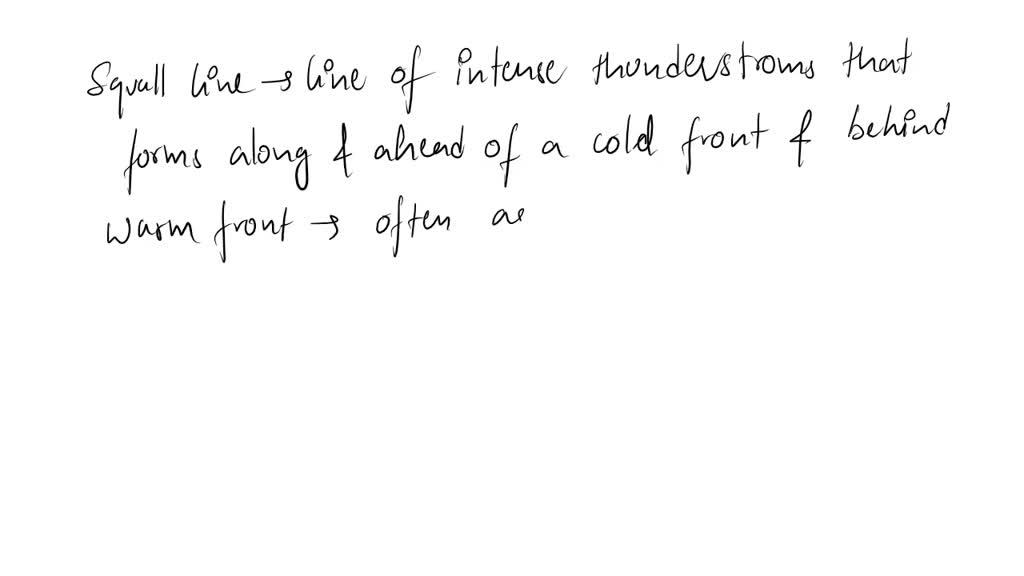 Squall line → line of intense thunderstroms that
forms along & ahead of a cold front & behind
warm front → often as